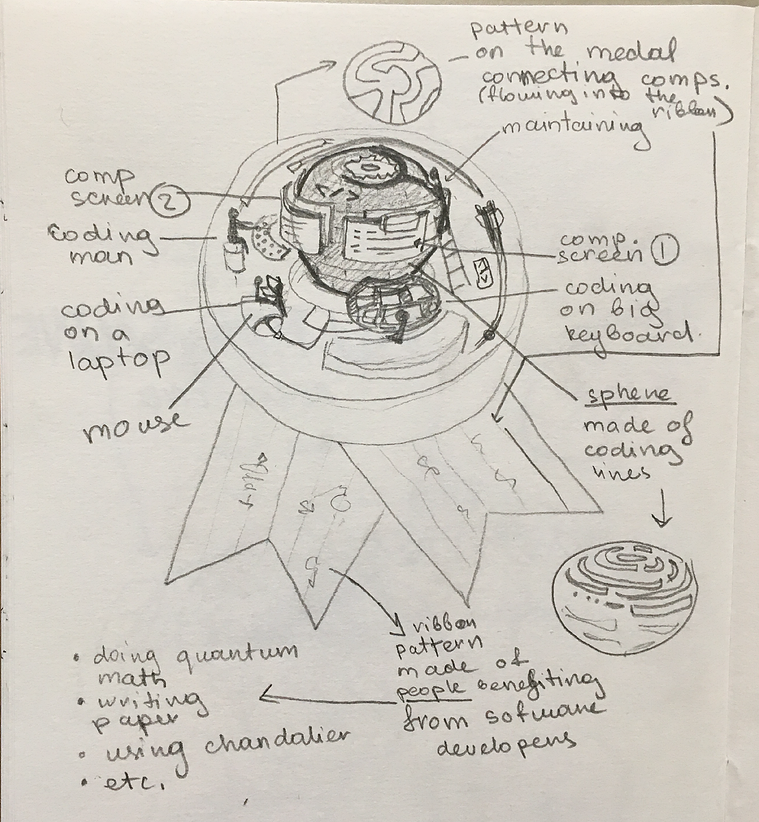 pattern
on the medal
connecting comps.
(flowing into the
ribbon)
maintaining
comp
screen 2
coding
man
coding
on a
laptop
mouse
comp.
screen 1
coding
on big
keyboard.
sphene
made of
coding
lines
</>
ribbon
pattern
made of
people benefiting
from sofware
developers
• doing quantum
math
• writing
paper
• using chandalier
• etc.